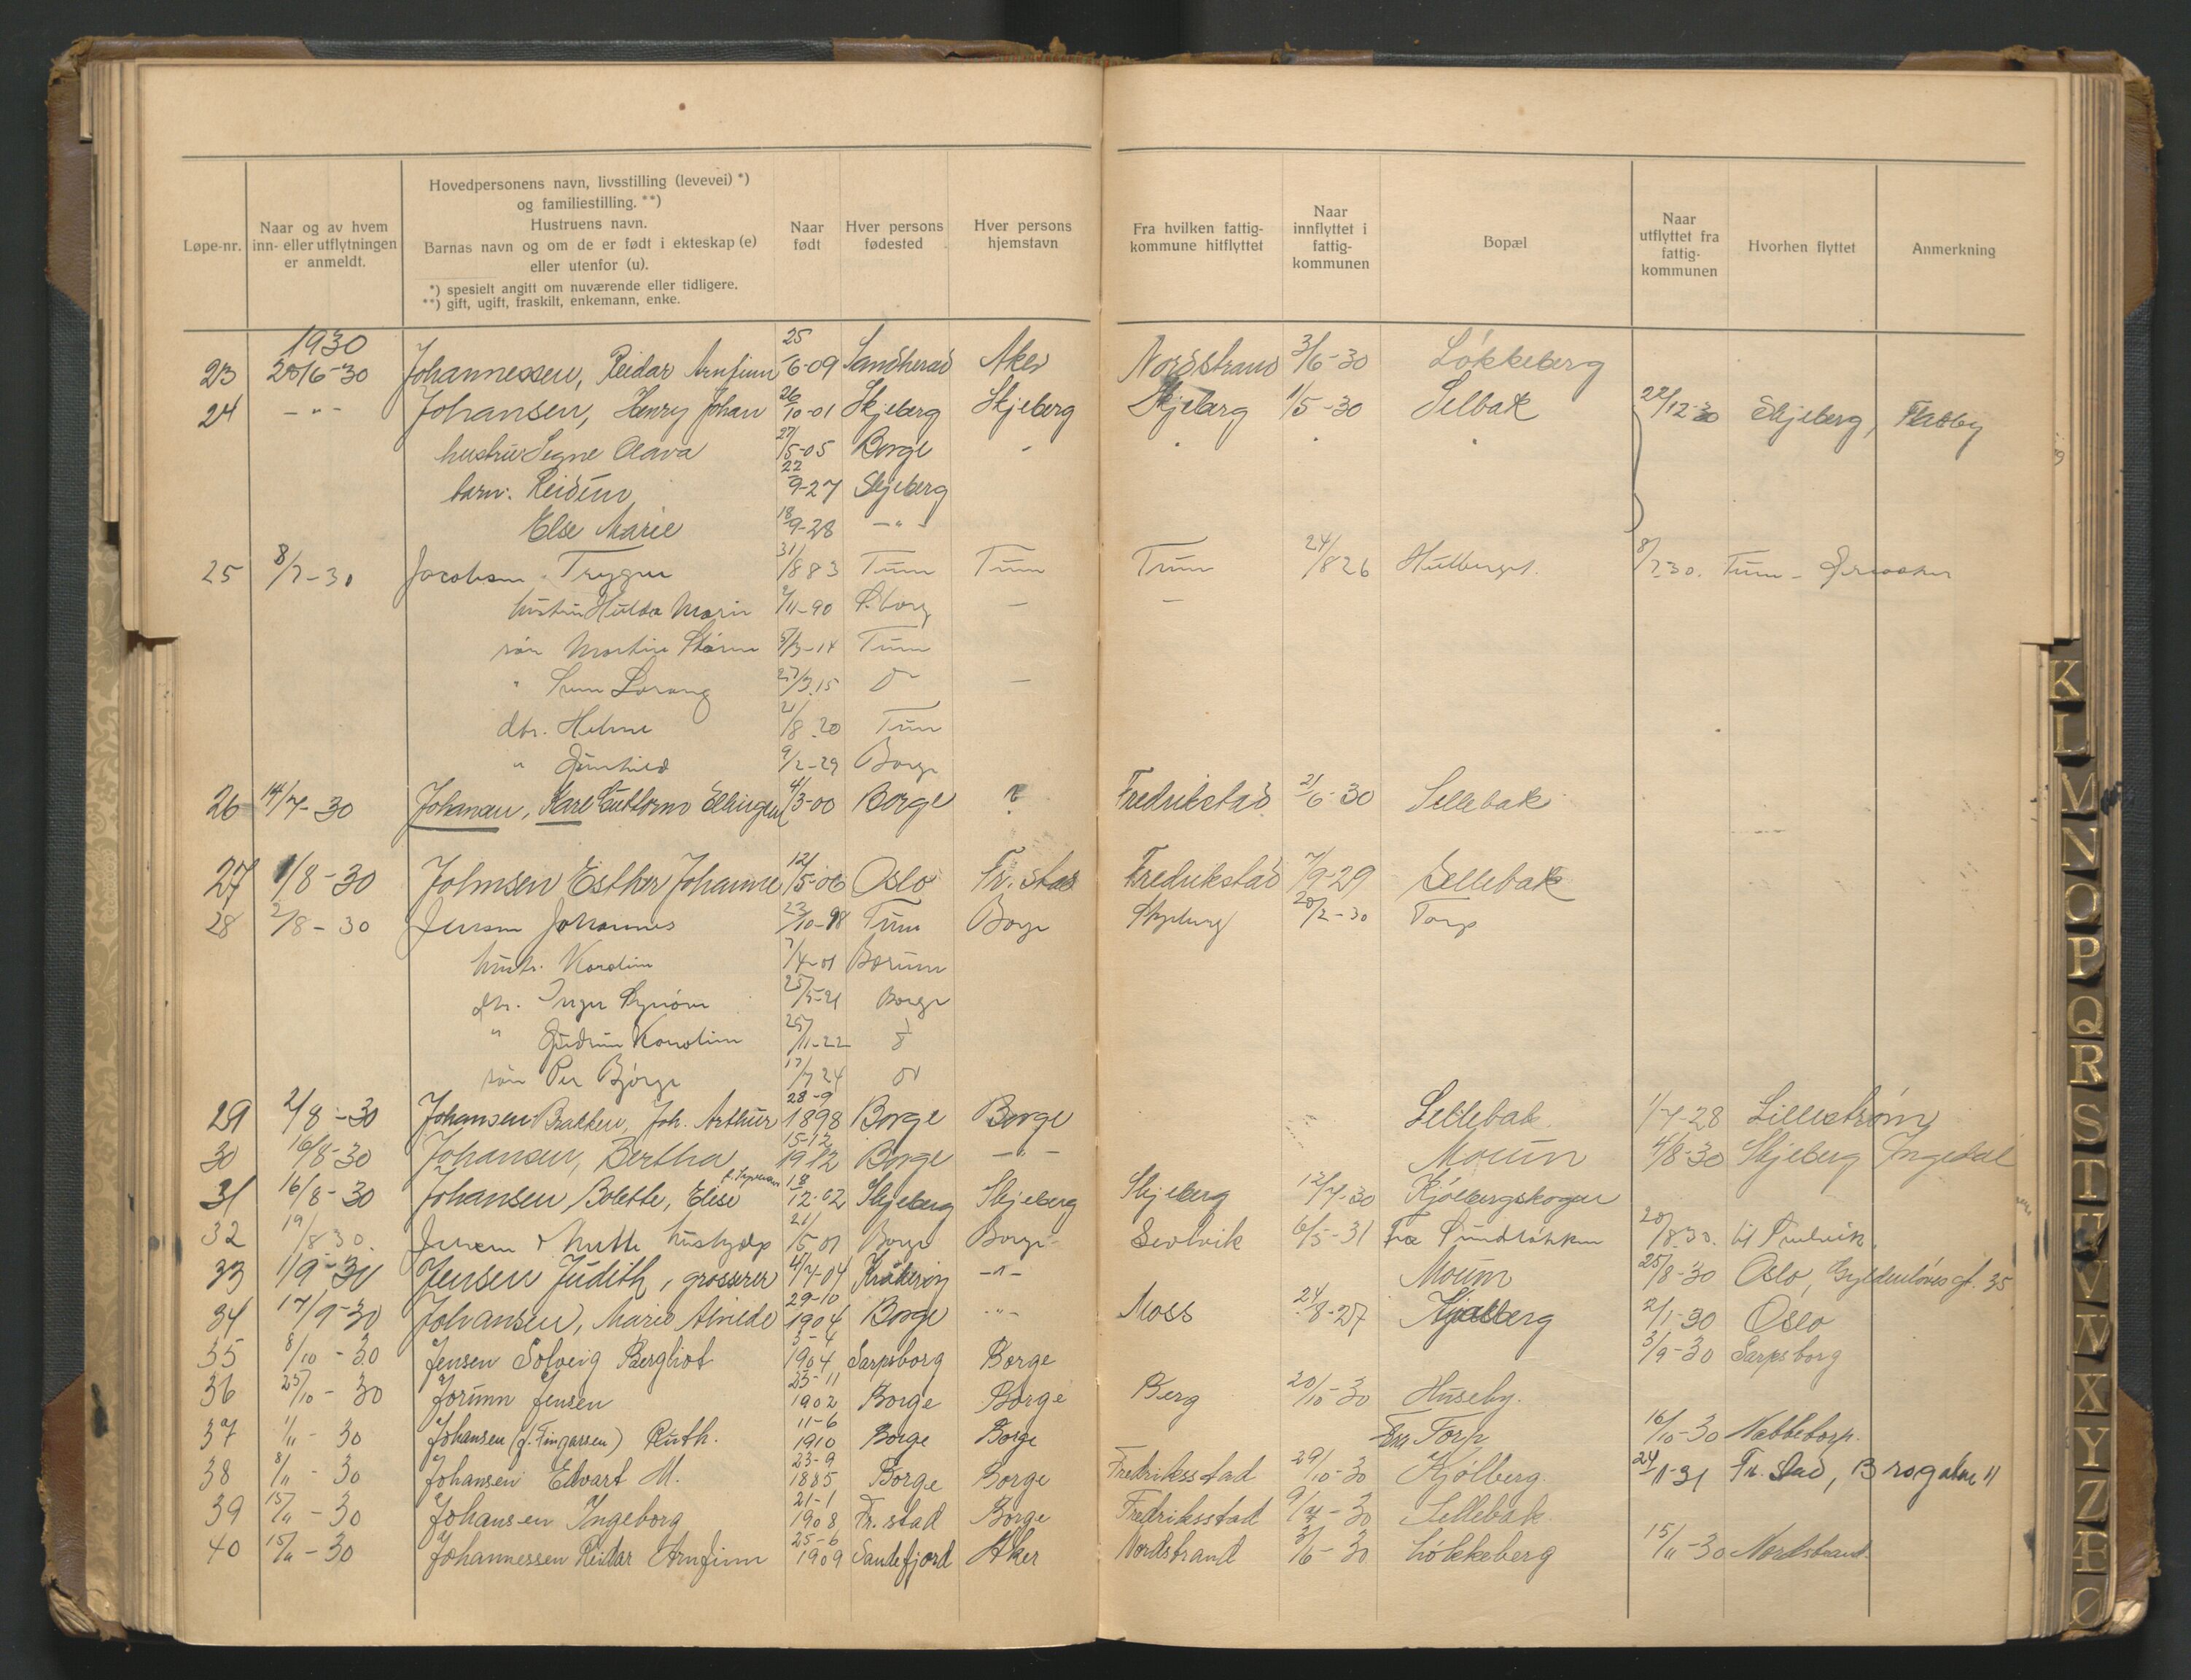 Løpe-nr.
Naar og av hvem
inn- eller utflytningen
er anmeldt.
Hovedpersonens navn, livsstilling (levevei) *)
og familiestilling. **)
Hustruens navn.
Barnas navn og om de er født i ekteskap (e)
eller utenfor (u).
*) spesielt angitt om nuværende eller tidligere.
**) gift, ugift, fraskilt, enkemann, enke.
Naar
født
Hver persons
fødested
Hver persons
hjemstavn
Fra hvilken fattig-
kommune hitflyttet
Naar
innflyttet i
fattig-
kommunen
Bopæl
Naar
utflyttet fra
fattig-
kommunen
Hvorhen flyttet
Anmerkning
1930
23 20/6-30 Johannessen, Reidar Arnfinn 25/6-09 Sandherad Aker Nordstrand 3/6-30 Løkkeberg
24 -"- Johansen, Henry Johan 26/10-01 Skjeberg Skjeberg Skjeberg 1/5-30 Selbak 22/12-30 Skjeberg,
hustru Signe Olava 27/5-05 Borge
barn: Reidun 22/9-27 Skjeberg
Else Marie 18/9-28 -"-
25 8/7-30 Jacobsen Trygve 31/8 83 Tune Tune Tune 24/8 26 8/7 30. Tune -
hustru Hulda Marie /11-90 S.borg
søn Martin 5/3-14 Tune
" 27/3.15 do
dtr. 21/8.20 Tune
" Gunhild 9/2-29 Borge
26 14/7-30 Johansen, Kare Ellingsen 4/3-00 Borge ? Fredrikstad 21/6-30 Sellebak
27 1/8-30 Johnsen Esther Johanne 12/5-06 Oslo Fr.stad Fredrikstad 7/9-29 Sellebak
28 2/8-30 Jensen Johannes 23/10-98 Tune Borge Skjeberg 20/2-30 Torp
hustr. Karoline 7/4-01 Bærum
dtr. Inger 25/5-21 Borge
" Gudrun Karoline 25/11-22 do
søn Per Bjørge 17/7 24 do
29 2/8-30 Johansen Brakken, Joh. Arthur 28-9 1898 Borge Borge Sellebak 1/7-28 Lillestrøm
30 16/8-30 Johansen, Bertha 15-12 1912 Borge -"- Moum 4/8-30 Skjeberg Ingedal
31 16/8-30 Johansen, Bolette, Elise 18/12-02 Skjeberg Skjeberg Skjeberg 12/7-30 Kjølbergskogen
32 19/8 30. Jensen hushjelp 21/5 01 Borge Borge 6/5-31 Fra 20/8.30. til
33 1/9-30 Jensen Judith, grosserer 4/7-04 Kråkerøy -"- Moum 25/8-30 Oslo, Gyldenløvesgt. 35
34 17/9-30 Johansen, Marie Alvilde 29-10 1904 Borge -"- Moss 24/8-27 Kjølberg 2/1-30 Oslo
35 8/10-30 Jensen Solveig Bergliot 3-4 1904 Sarpsborg Borge 3/9-30 Sarpsborg
36 25/10-30 Jorunn Jensen 23-11 1902 Borge Borge Berg 20/10-30 Huseby.
37 1/11-30 Johansen (f. Fingarsen) Ruth. 11-6 1910 Borge Borge Fra Torp 16/10-30 Nabbetorp.
38 8/11-30 Johansen Edvart M. 23-9 1885 Borge Borge Fredriksstad 29/10-30 Kjølberg. 24/1-31 Fr.stad,
39 15/11-30 Johansen Ingeborg 21-1 1908 Fr.stad Borge Fredriksstad 9/7-30 Sellebak.
40 15/11-30 Johannessen Reidar Arnfinn 25-6 1909 Sandefjord Aker Nordstrand 3/6-30 Løkkeberg 15/11-30 Nordstrand.
K
L
M
N
O
P
Q
R
S
T
U
V
W
X
Y
Z
Æ
Ø